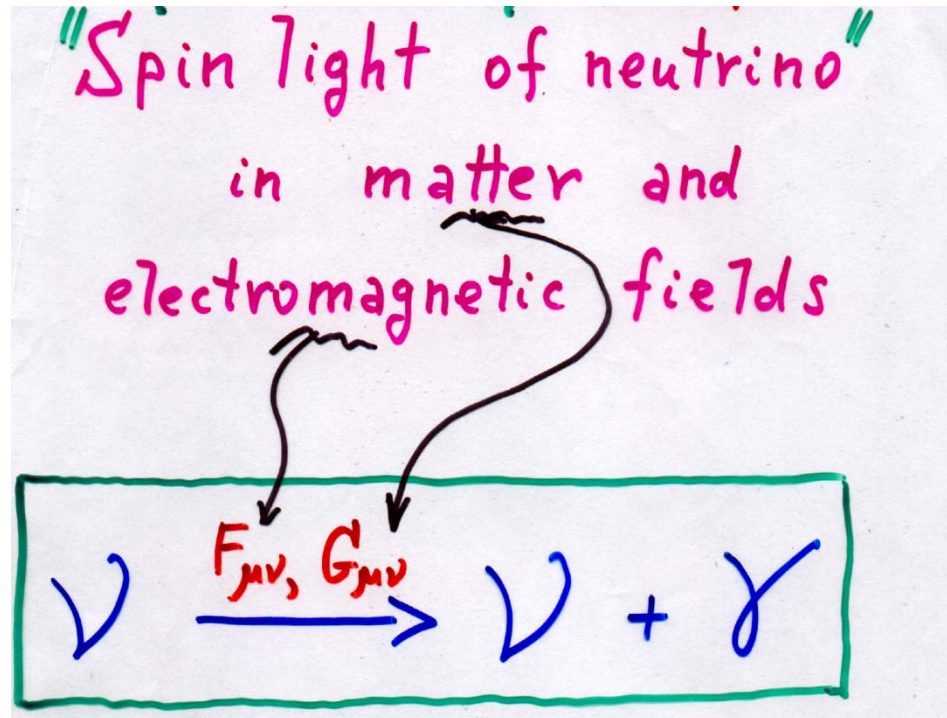 "Spin light of neutrino"
in matter and
electromagnetic fields
F_μν, G_μν
ν → ν + γ